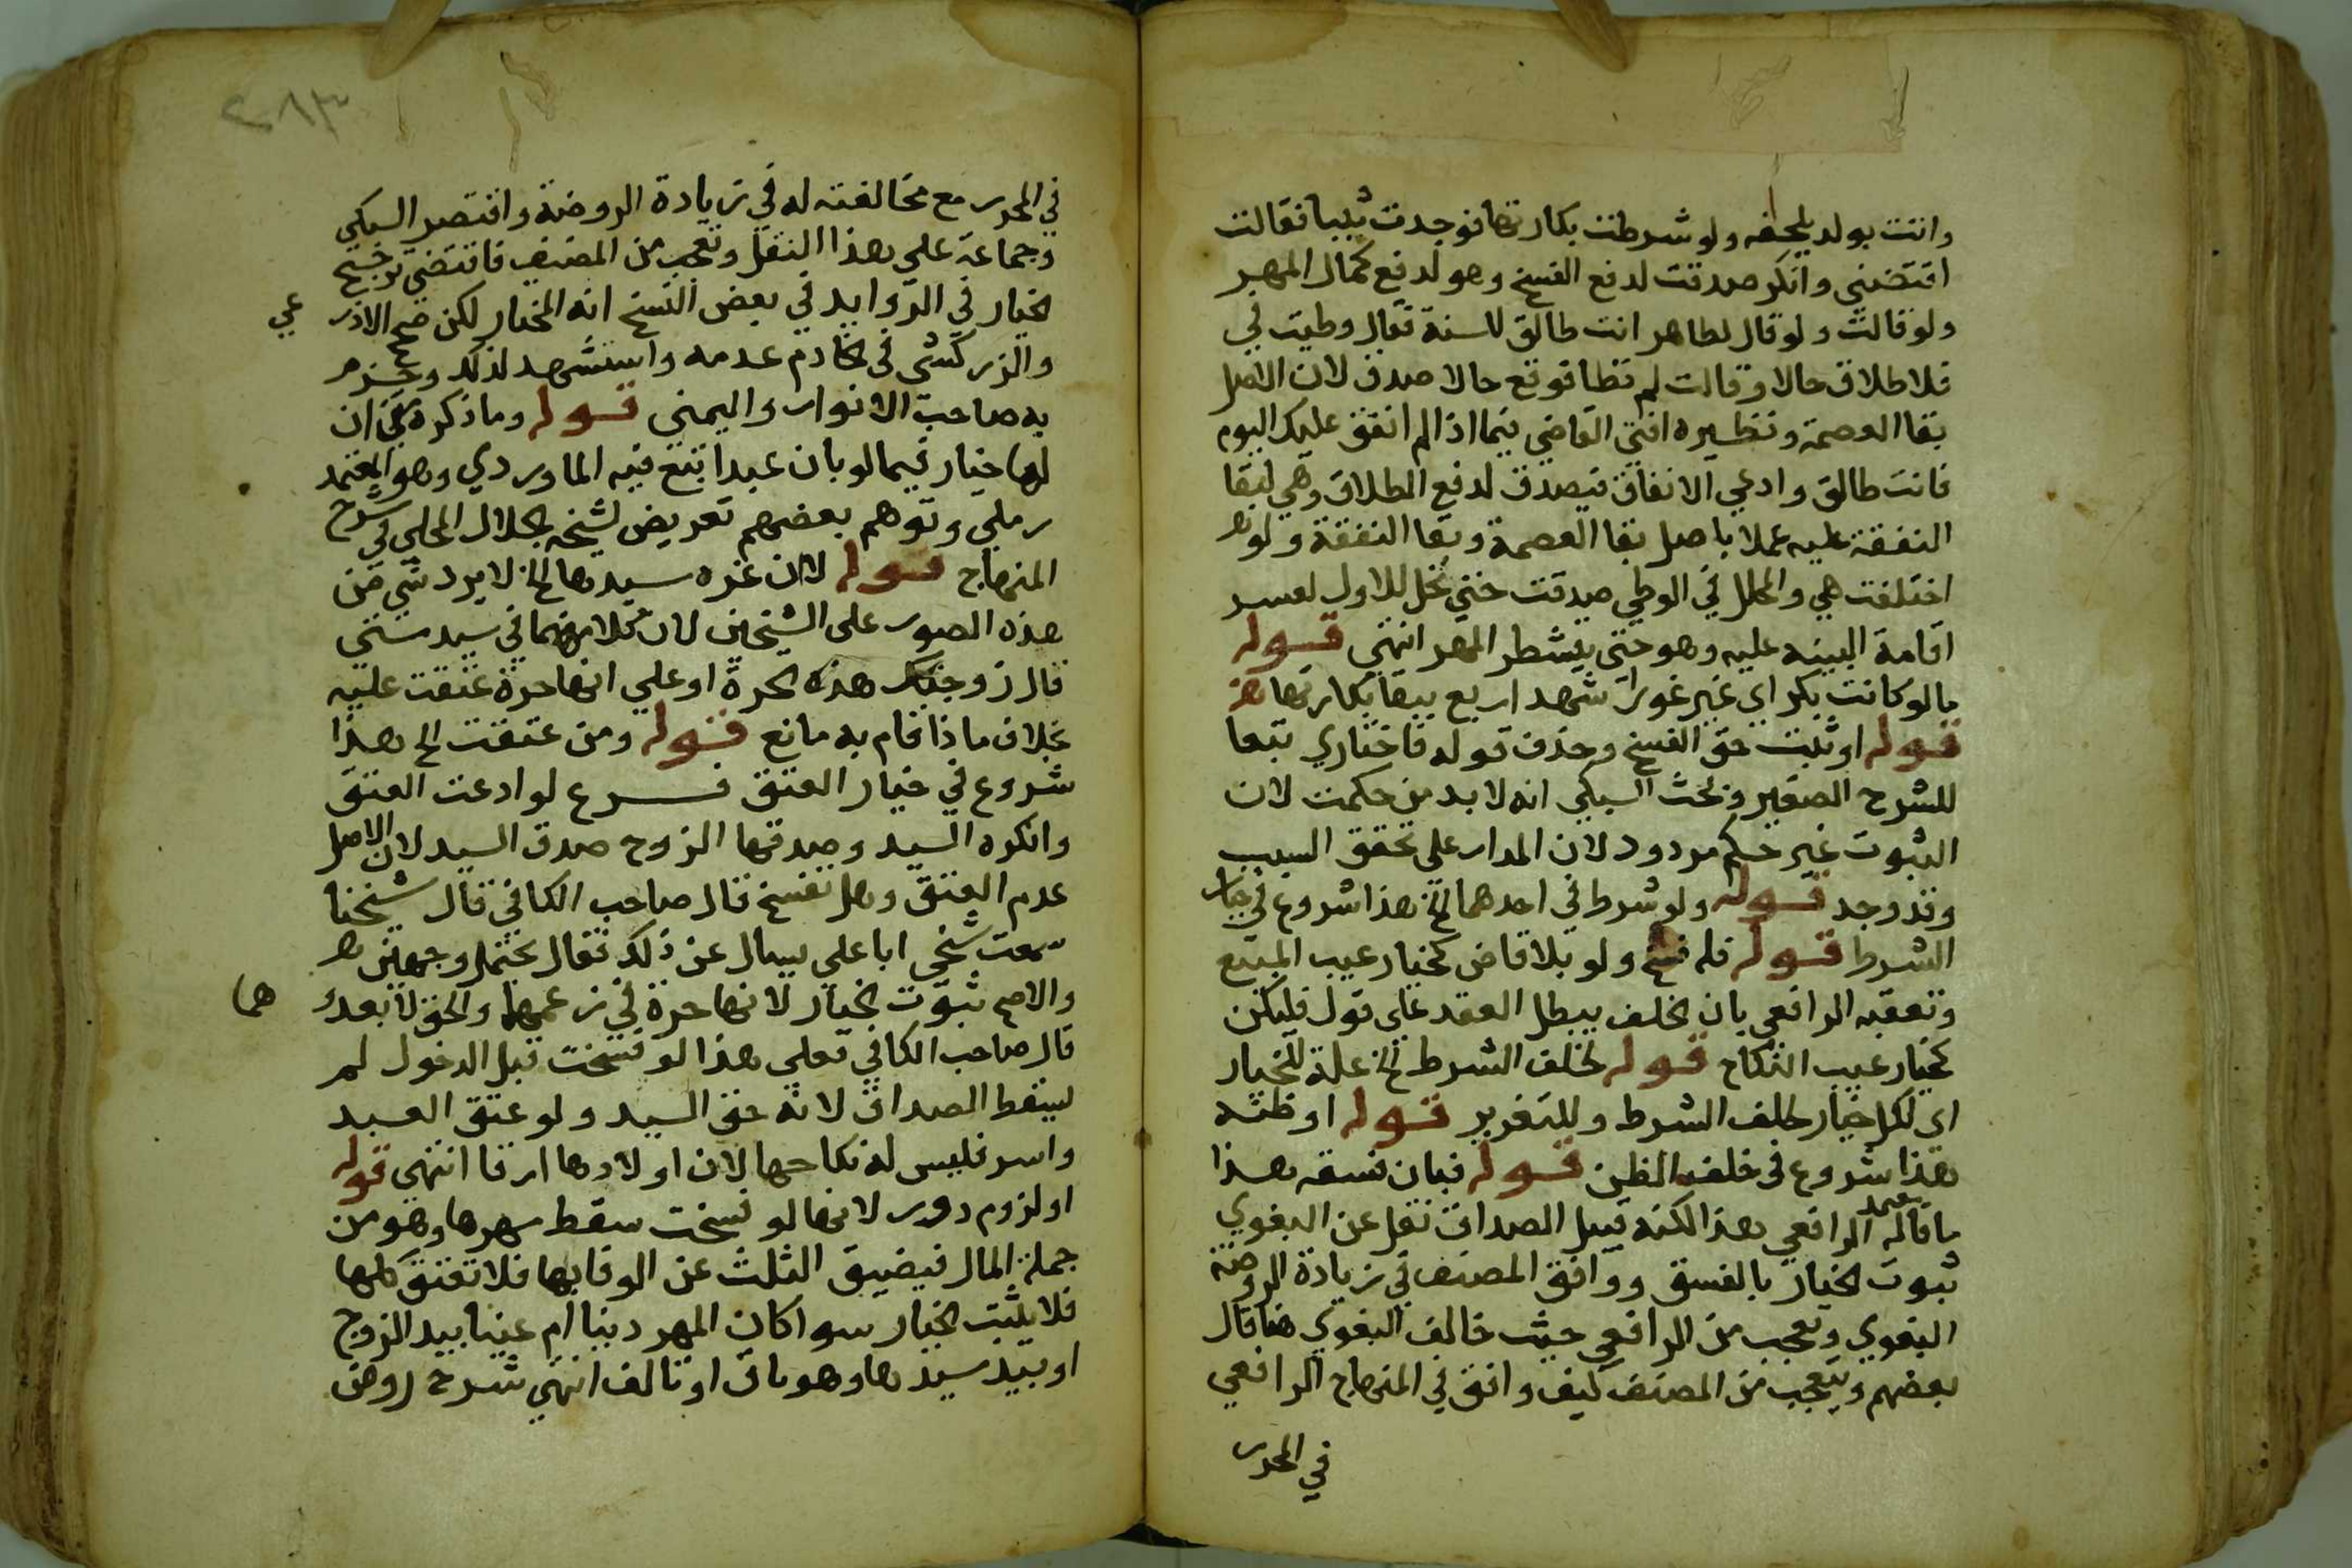 واتت بولد يلحقه ولو شرطت بكارتها فوجدت ثيبا فقالت
افتضني وانكر صدقت لدفع الفسخ وهو لدفع كمال المهر
ولو قالت ولو قال لطاهر انت طالق للسنة فقال وطيت في
فلا طلاق حالا وقالت لم تطا فوقع حالا صدق لان الاصل
بقا العصمة ونظيره افتى القاضي فيما اذا لم انفق عليك اليوم
فانت طالق وادعي الانفاق فيصدق لدفع الطلاق وهي لبقا
النفقة عليه عملا باصل بقا العصمة وبقا النفقة ولو
اختلفت هي والمحلل في الوطي صدقت حتي تحل للاول لعسر
اقامة البينه عليه وهو حتي يتشطر المهر انتهي قوله
مالو كانت بكر اي غير غورا شهد اربع ببقا بكارتها
قوله او ثبت حق الفسخ وحذف قوله فاختاري تبعا
للشرح الصغير وبحث السبكي انه لا بد من حكمت لان
الثبوت غير حكم مردود لان المدار علي تحقق السبب
وقد وجد قوله ولو شرط في احدهما الخ هذا شروع في خيار
الشرط قوله فله فسخ ولو بلا قاض كخيار عيب المبيع
وتعقبه الرافعي بان الخلف يبطل العقد علي قول فليكن
كخيار عيب النكاح قوله لخلف الشرط الخ علة للخيار
اي لكل خيار لخلف الشرط وللتغرير قوله او ظنته
هذا شروع في خلف الظن قوله فبان فسقه هذا
ما قاله الرافعي هذا لكنه قبيل الصداق نقل عن البغوي
ثبوت الخيار بالفسق ووافق المصنف في زيادة الروضة
البغوي وتعجب من الرافعي حيث خالف البغوي هنا قال
بعضهم ويتعجب من المصنف كيف وافق في المنهاج الرافعي
في المحرر
٢٨٣
في المحرر مع مخالفته له في زيادة الروضة واقتصر السبكي
وجماعة علي هذا النقل وتعجب من المصنف فاقتضي ترجيح
الخيار في الزوايد في بعض النسخ انه المختار لكن صحح الاذر
عي
والزركشي في الخادم عدمه واستشهد لذلك وجزم
به صاحب الانوار واليمني قوله وما ذكرة من ان
لها خيار فيما لو بان عبدا تبع فيه الماوردي وهو المعتمد
رملي وتوهم بعضهم تعريض لشيخه الجلال المحلي في شرح
المنهاج قوله لاان غره سيدها الخ لا يرد شي من
هذه الصور علي الشيخين لان كلامهما في سيد مستني
قال زوجتك هذه الحرة او علي انها حرة عتقت عليه
بخلاف ما ذا قام به مانع قوله ومن عتقت الخ هذا
شروع في خيار العتق فرع لو ادعت العتق
وانكره السيد وصدقها الزوج صدق السيد لان الاصل
عدم العتق وهل تفسخ قال صاحب الكافي قال شيخنا
سمعت شيخي ابا علي يسال عن ذلك فقال يحتمل وجهين
والاصح ثبوت الخيار لانها حرة في زعمهما والحق لا يعدو
هما
قال صاحب الكافي فعلي هذا لو فسخت قبل الدخول لم
يسقط الصداق لانه حق السيد ولو عتق العبد
واسر فليس له نكاحها لان اولادها ارقا انتهي قوله
او لزوم دور لانها لو فسخت سقط مهرها وهو من
جملة المال فيضيق الثلث عن الوفا بها فلا تعتق كلها
فلا يثبت الخيار سوا كان المهر دينا ام عينا بيد الزوج
او بيد سيدها وهو باق او تالف انتهي شرح روض